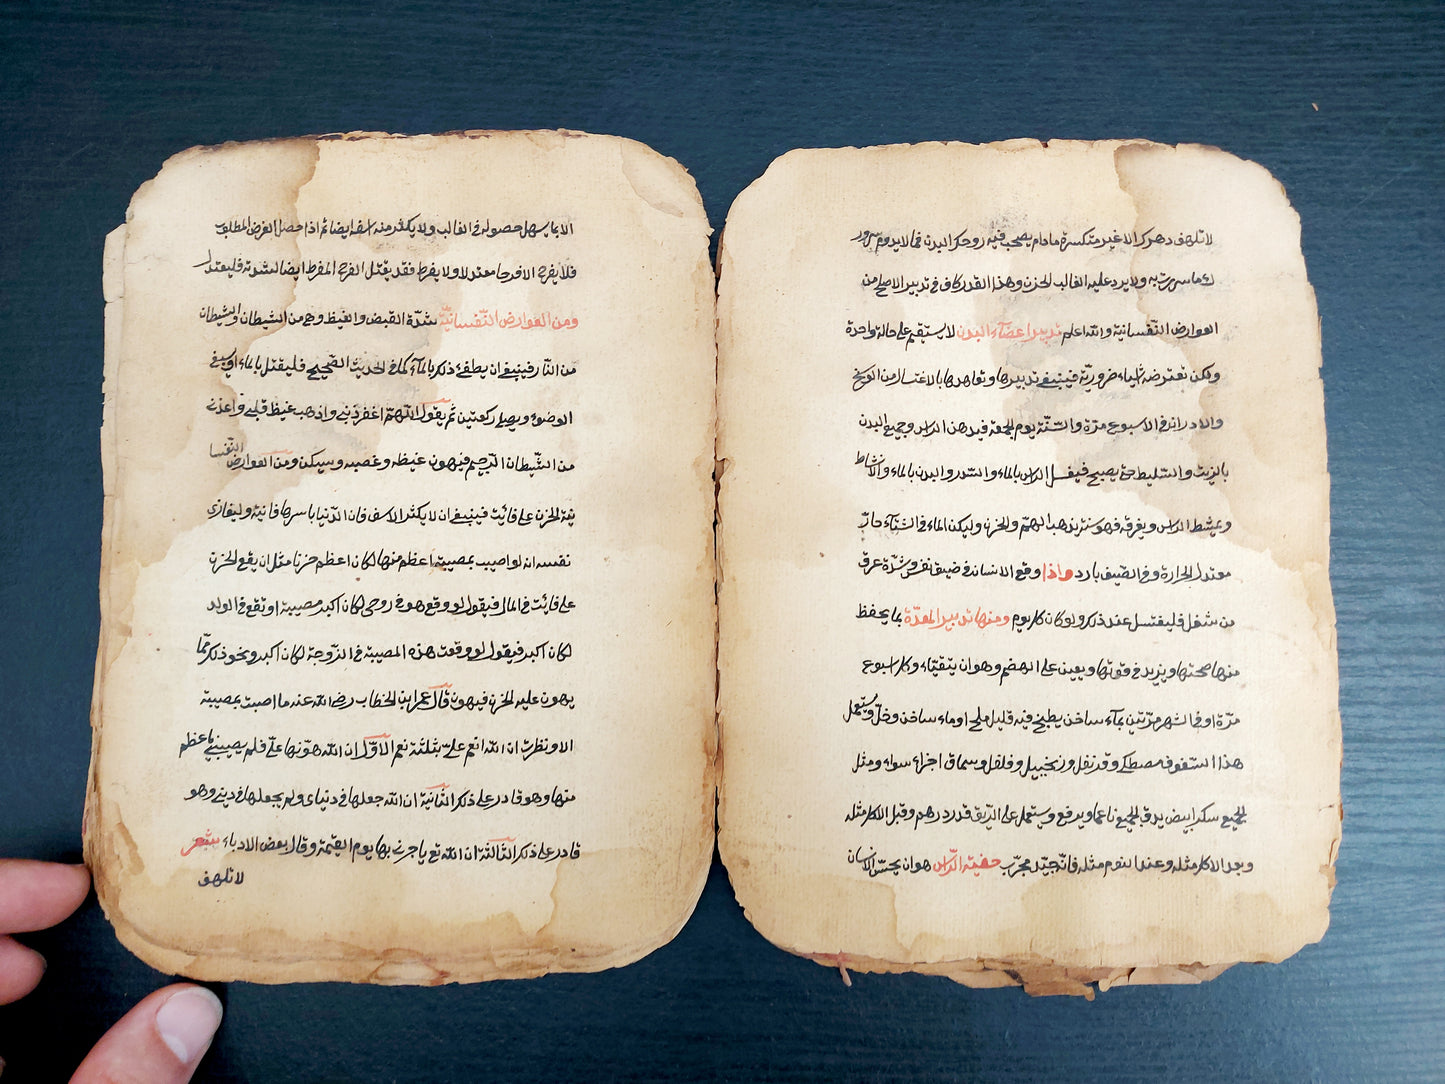 الا بما يسهل حصوله في الغالب ولا يكثر منه اسفه ايضا ثم اذا حصل الغرض المطلوب
فلا يفرح الا فرحا معتدلا ولا يفرط فقد يقتل الفرح المفرط ايضا لشدته فليعتدل
ومن العوارض النّفسانيّة شدّة القبض والغيظ وهي من الشيطان والشيطان
من النّار فينبغي ان يطفئ ذلك بالمآء كما في الحديث الصّحيح فليغتسل بالماء او يسبغ
الوضوء ويصلي ركعتين ثم يقول اللّهمّ اغفر ذنبي واذهب غيظ قلبي واعذني
من الشّيطان الرّجيم فيهون غيظه وغضبه ويسكن ومن العوارض النّفسا
نية الحزن على فائت فينبغي ان لا يكثر الاسف فان الدّنيا باسرها فانية وليفارق
نفسه انه لو اصيب بمصيبة اعظم منها لكان اعظم حزنا مثل ان يقع الحزن
على فائت في المال فيقول لو وقع هو في روحي لكان اكبر مصيبة او تقع في الولد
لكان اكبر فيقول لو وقعت هذه المصيبة في الزّوجة لكان اكبر ونحو ذلك ممّا
يهون عليه الحزن فيهون قال عمر ابن الخطاب رضي الله عنه ما اصبت بمصيبة
الا ونظرت ان الله انعم عليّ بثلثة نعم الاوّل ان الله هوّنها عليّ فلم يصيبني باعظم
منها وهو قادر على ذلك الثّانية ان الله جعلها في دنياي ولم يجعلها في ديني وهو
قادر على ذلك الثّالثة ان الله تع ياجرني بها يوم القيمة وقال بعض الادباء شعر
لا تلهف
لا تلهف دهرك الا غير منكسرة مادام يصحب فيه روحك البدن فما لا يدوم سرور
ك ما سررت به ولا يرد عليه الغالب الحزن وهذا القدر كاف في تدبير الاصلح من
العوارض النّفسانية والله اعلم تدبير اعضآء البدن لا يستقيم على حالة واحدة
ولكن تعترضه اشياء ضروريّة فينبغي تدبيرها وتعاهدها بالاغتسال من الوسخ
والادران في الاسبوع مرّة والسّنّة يوم الجمعة فيدهن الراس وجميع البدن
بالزيت والسّليط حتى يصبح فيغسل الراس بالماء والسّدر والبدن بالماء والاشاط
ويمشط الراس ويفرقه فهو سنة يذهب الهمّ والحزن وليكن الماء في الشتآء حارّ
معتدل الحرارة وفي الصّيف بارد واذا وقع الانسان في ضيق نفس وشدّة عرق
من شغل فليغتسل عند ذلك ولو كان كل يوم ومنها تدبير المعدّة بما يحفظ
منها صحتها ويزيد في قوتها ويعين على الهضم وهو ان يتقيّاء وكل اسبوع
مرّة او في الشهر مرّتين بماء ساخن يطبخ فيه قليل ملح او ماء ساخن وخلّ ويستعمل
هذا السّفوف مصطكي وقرنفل وزنجبيل وفلفل وسماق اجزاء سواء ومثل
الجميع سكر ابيض يدق الجميع ناعما ويرفع ويستعمل على الرّيق قدر درهم وقبل الاكل مثله
وبعد الاكل مثله وعند النوم مثله فانّه جيّد مجرّب حفية الرّاس هو ان يحسّ الانسان